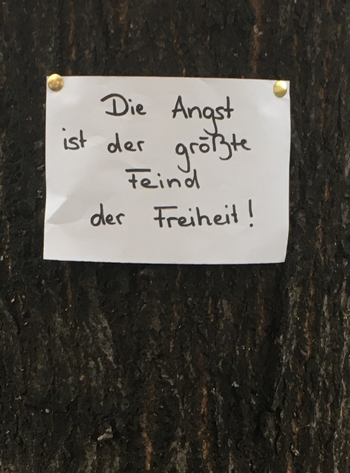 Die Angst
ist der größte
Feind
der Freiheit!